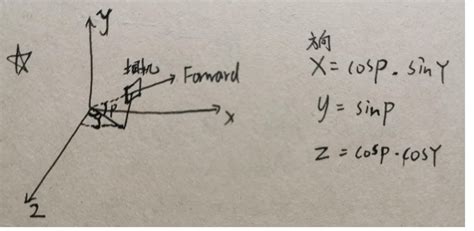 y
相机
Forward
P
x
Z
方向
X = cosp · sinY
y = sinp
Z = cosp · cosY